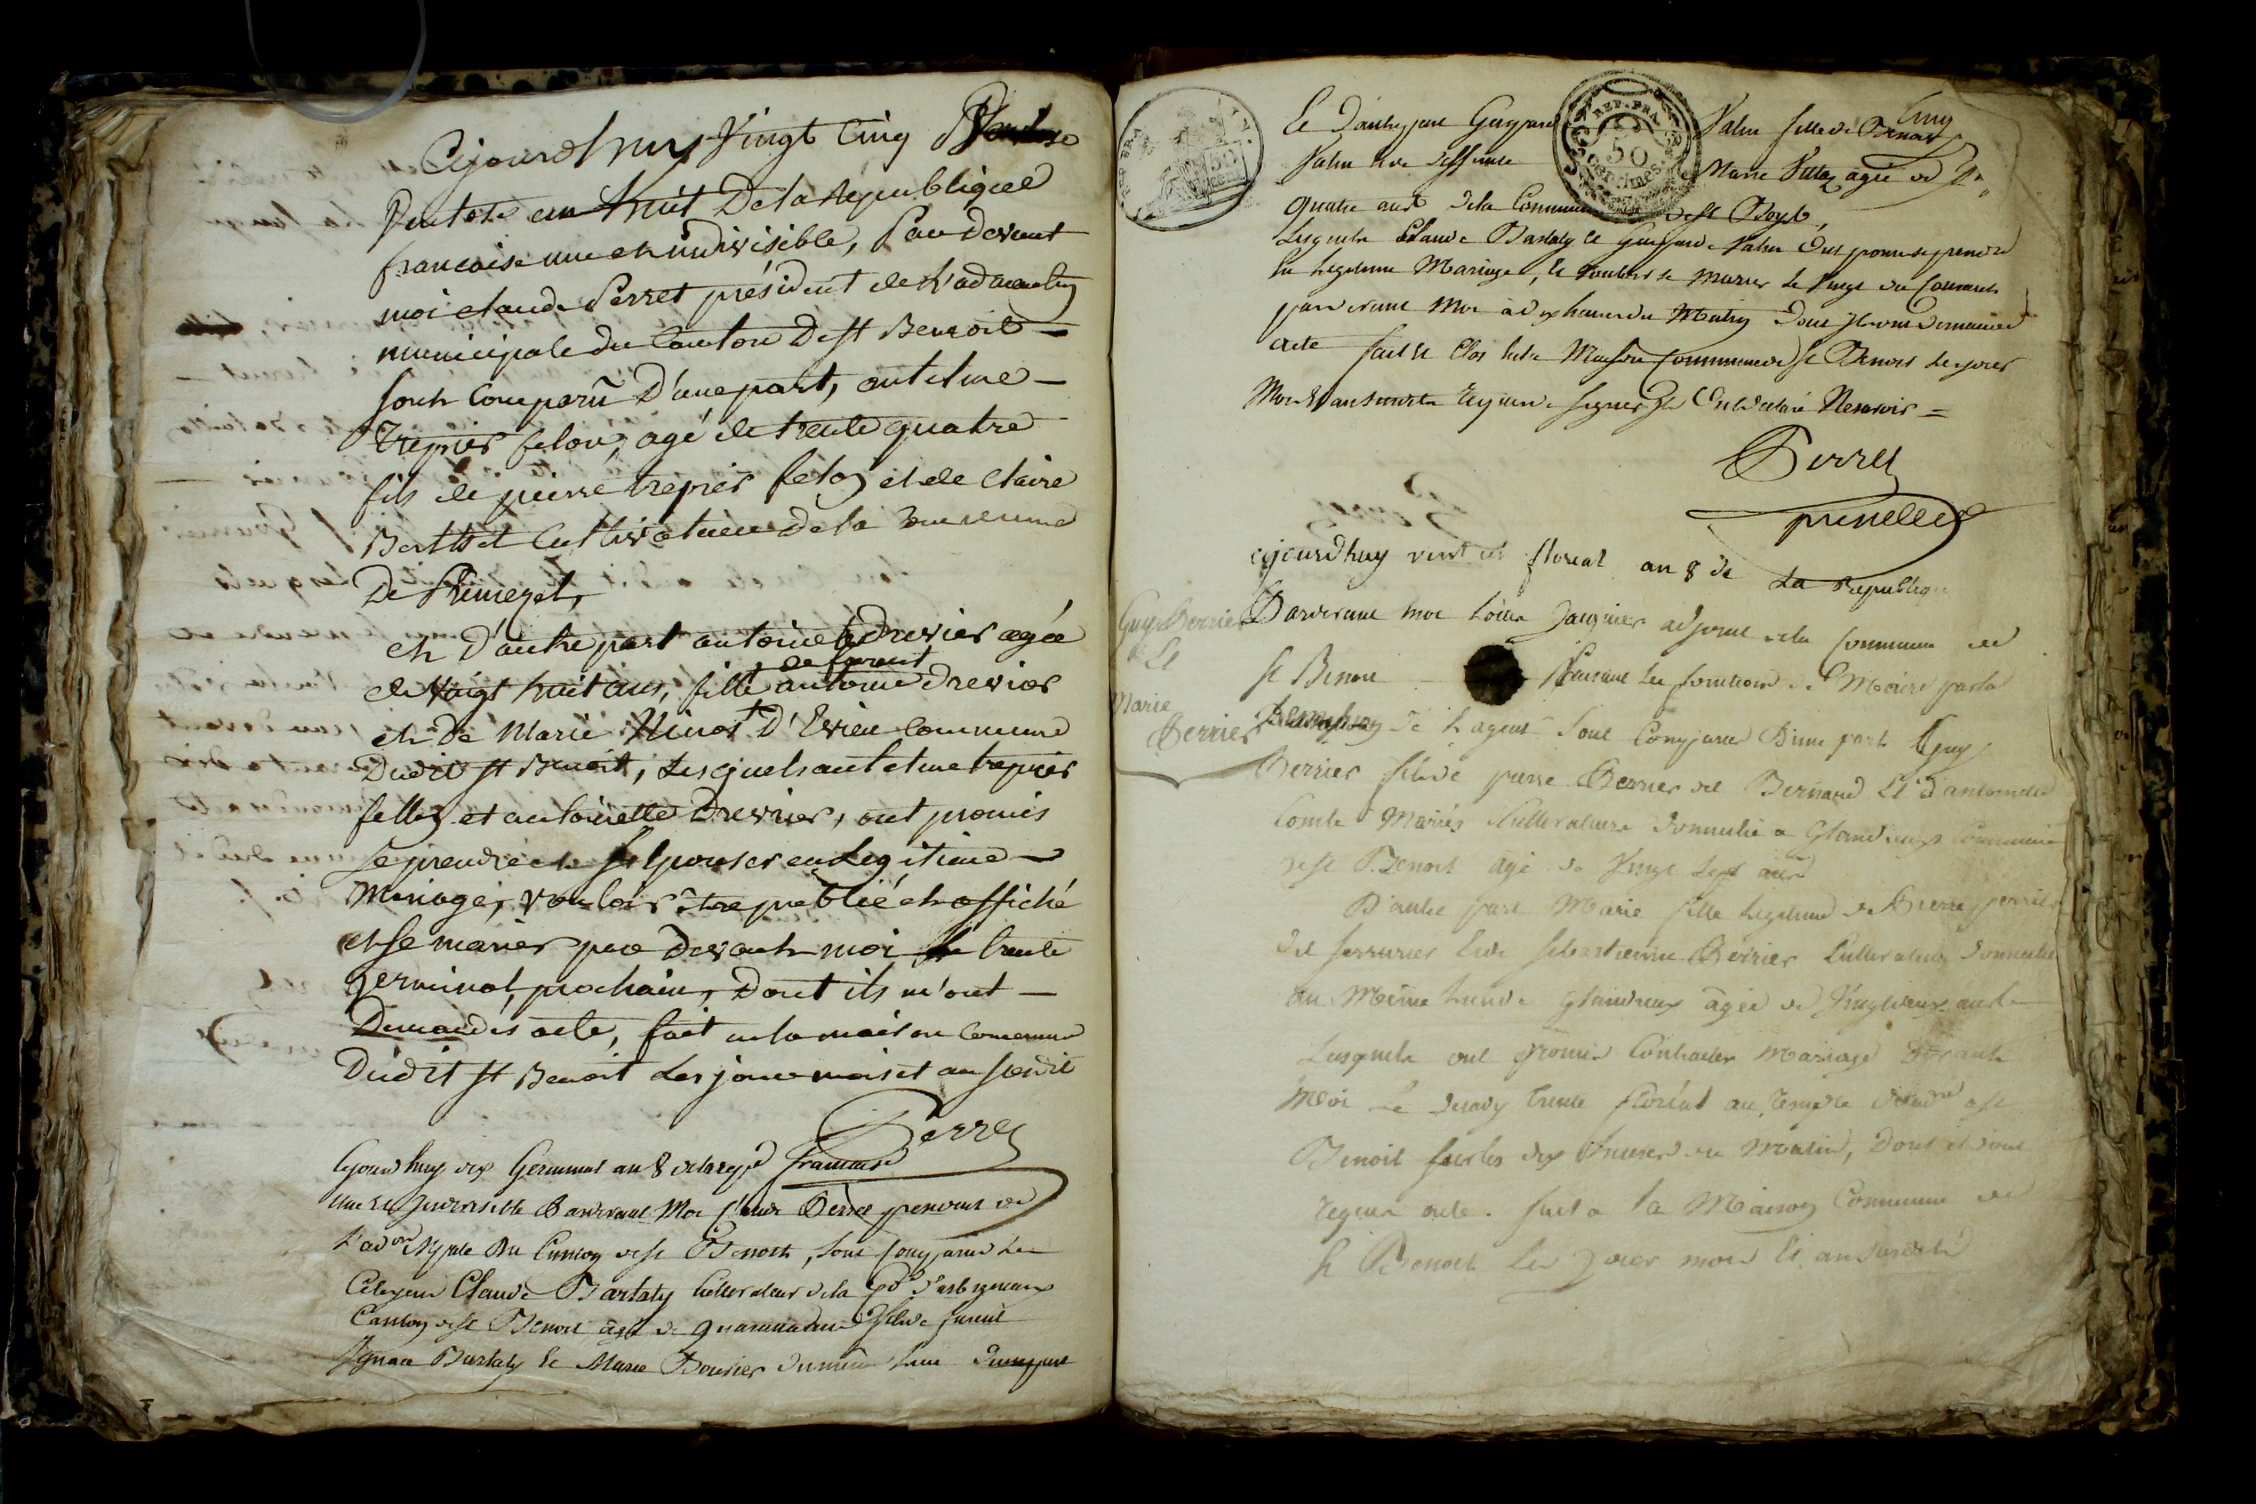 Cejourdhuy Vingt Cinq
Ventose an huit De la Republique
francaise une et indivisible, Par Devant
moi claude Perret président de l'adm
municipale du Canton De st Benoit
sont Comparu D'une part, antelme
trepier felon, agé de trente quatre
fils de pierre trepier felon et de Claire
Berthet Cultivateur De la Commune
De
et D'autre part antoinette Drevier agée
de Vingt huit ans, fille de furent
antoine Drevier
et De Marie Ninot D'Evieu Commune
Dudit st Benoit, Lesquels antelme trepier
fellon et antoinette Drevier, ont promis
se prendre et Epouser en Legitime
Mariage, vouloir être publié et affiché
et se marier par Devant moi le trente
germinal, prochain, Dont ils m'ont
Demandés acte, fait en la maison Commune
Dudit st Benoit Les jour mois et an susdit
Perret
Cejourdhuy dix Germinal an 8 de la rep francaise
une et Indivisible Pardevant Moi Claude Perret president de
L'ad du Canton de st Benoit, sont Comparus Le
Citoyen Claude Bartaly Cultivateur de la
Canton de st Benoit âgé de quarante ans fils de furent
Ignace Bartaly et Marie Bouvier du même Lieu d'une part
Cinq
REP. FRA.
50
centimes
Et D'autre part Guyarde Valin fille de Benoit
Valin et de deffunte Marie agée de
quatre ans de la Commune de st
Lesquels Claude Bartaly et Guyarde Valin Ont promis se prendre
En Legitime Mariage, et vouloir se marier le Vingt du Courant
pardevant Moi à dix heures du Matin Dont ils ont Demandé
acte fait et Clos En la Maison Commune de St Benoit les jour
Mois et an susdits requis de signer Ont declaré Ne savoir =
Perret
prunelle
Guy Perrier
& Et
Marie
Perrier
cejourdhuy vint et floreal an 8 de La Republique
Pardevant moi adjoint de la Commune de
St Benoit faisant les fonctions de Maire par la
Demission de L'agent Sont Comparus D'une part Guy
Perrier fils de pierre Perrier dit Bernard Et D'antoinette
Comte Mariés Cultivateurs domicilié a Glandieux Commune
de st Benoit agé de Vingt sept ans
D'autre part Marie fille Legitime de Pierre perrier
dit serrurier Et de sebastienne Perrier Cultivateurs Domiciliés
au Même Lieu de glandieux âgée de Vingt deux ans
Lesquels ont promis Contracter Mariage devant
Moi Le decady trente floréal au Temple dudit st
Benoit sur les dix heures du Matin, Dont ils ont
requis acte. fait a la Maison Commune de
St Benoit Les jour mois et an susdits